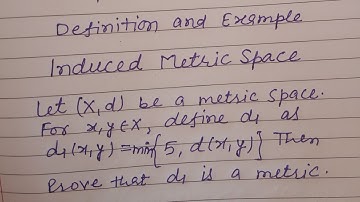 Definition and Example
Induced Metric Space
Let (X,d) be a metric space.
For x,y ∈ X, define d₁ as
d₁(x,y) = min{5, d(x,y)} Then
Prove that d₁ is a metric.